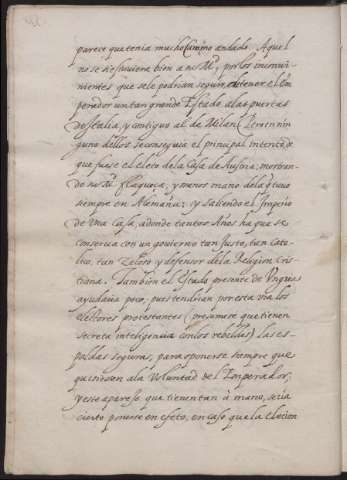 parece que tenia mucho Camino andado. Aquel
no se si estuviera bien a su Md, por los inconui-
nientes que dele podrian seguir obtener el Em
perador un tan grande Estado a las puertas
de Italia, y contiguo al de Milan. Pero en nin
guno dellos se conseguia el principal intento de
que fuese el eleto dela Casa de Austria, mostran-
do su Md flaqueça, y menos mano dela q tuuo
siempre en Alemaña: y saliendo el Imperio
de una Casa, adonde tantos Años ha que se
conserua con un gouierno tan Iusto, tan Cato-
lico, tan Zeloso, y defensor dela Religion Cris-
tiana. Tambien el Estado presente de Ungria
ayudaria poco, pues tendrian por esta via los
electores protestantes (presumese que tienen
secreta inteligencia con los rebeldes) las es-
paldas seguras, para oponerse siempre que
quisiesen ala Voluntad del Emperador;
y este aparejo que tienen tan à mano, seria
cierto ponerse en efeto, en caso que la Election